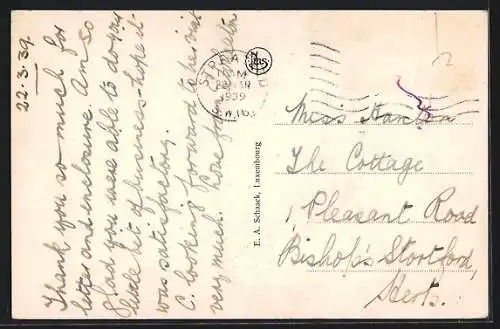 22.3.39.
Thank you so much for
letter and enclosure. Am so
glad you were able to do my
little bit of business - hope it
was satisfactory.
C. looking forward to her visit
very much. Love from
E. A. Schaack, Luxembourg
1939
Miss
The Cottage
1, Pleasant Road
Bishop's Stortford,
Herts.